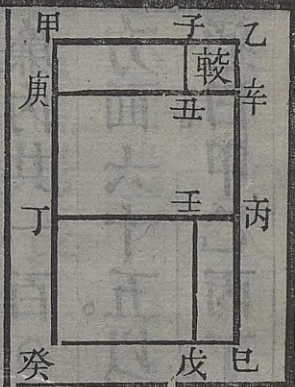 甲 子 乙
較
庚 丑 辛
丁 壬 丙
癸 戊 巳